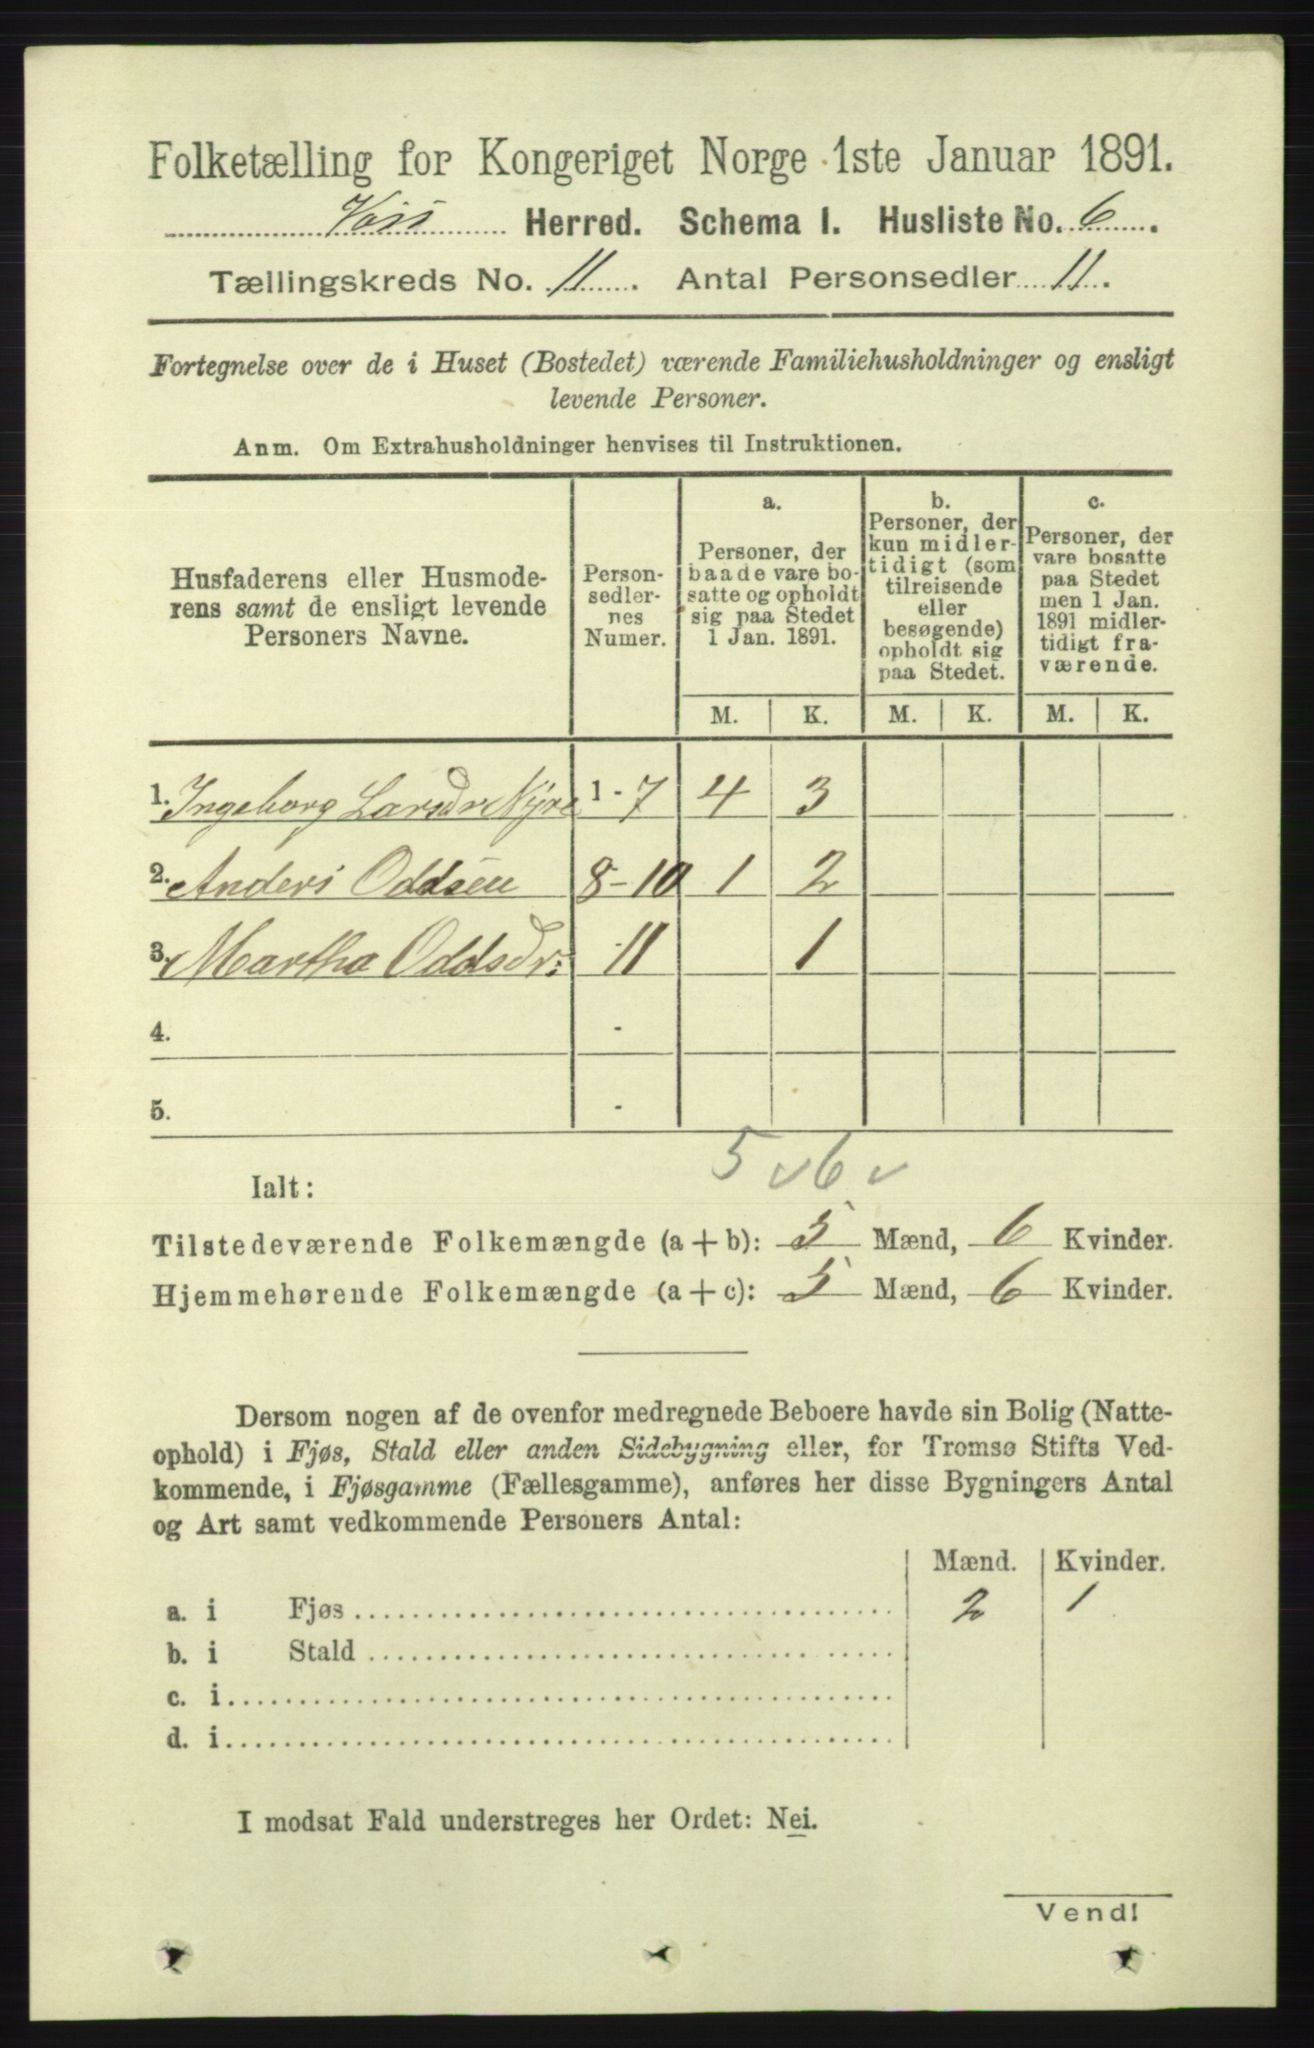 Folketælling for Kongeriget Norge 1ste Januar 1891.
Voss Herred. Schema I. Husliste No. 6.
Tællingskreds No. 11. Antal Personsedler 11.
Fortegnelse over de i Huset (Bostedet) værende Familiehusholdninger og ensligt
levende Personer.
Anm. Om Extrahusholdninger henvises til Instruktionen.
Husfaderens eller Husmode-
rens samt de ensligt levende
Personers Navne.
Person-
sedler-
nes
Numer.
a.
Personer, der
baade vare bo-
satte og opholdt
sig paa Stedet
1 Jan. 1891.
b.
Personer, der
kun midler-
tidigt (som
tilreisende
eller
besøgende)
opholdt sig
paa Stedet.
c.
Personer, der
vare bosatte
paa Stedet
men 1 Jan.
1891 midler-
tidigt fra-
værende.
M. K. M. K. M. K.
1. Ingeborg Larsdr Nyre 1-7 4 3
2. Anders Oddsen 8-10 1 2
3. Martha Oddsdr: -11 1
4. -
5. -
5 v 6 v
Ialt:
Tilstedeværende Folkemængde (a+b): 5 Mænd, 6 Kvinder.
Hjemmehørende Folkemængde (a+c): 5 Mænd, 6 Kvinder.
Dersom nogen af de ovenfor medregnede Beboere havde sin Bolig (Natte-
ophold) i Fjøs, Stald eller anden Sidebygning eller, for Tromsø Stifts Ved-
kommende, i Fjøsgamme (Fællesgamme), anføres her disse Bygningers Antal
og Art samt vedkommende Personers Antal:
Mænd. Kvinder.
a. i Fjøs 2 1
b. i Stald
c. i
d. i
I modsat Fald understreges her Ordet: Nei.
Vend!